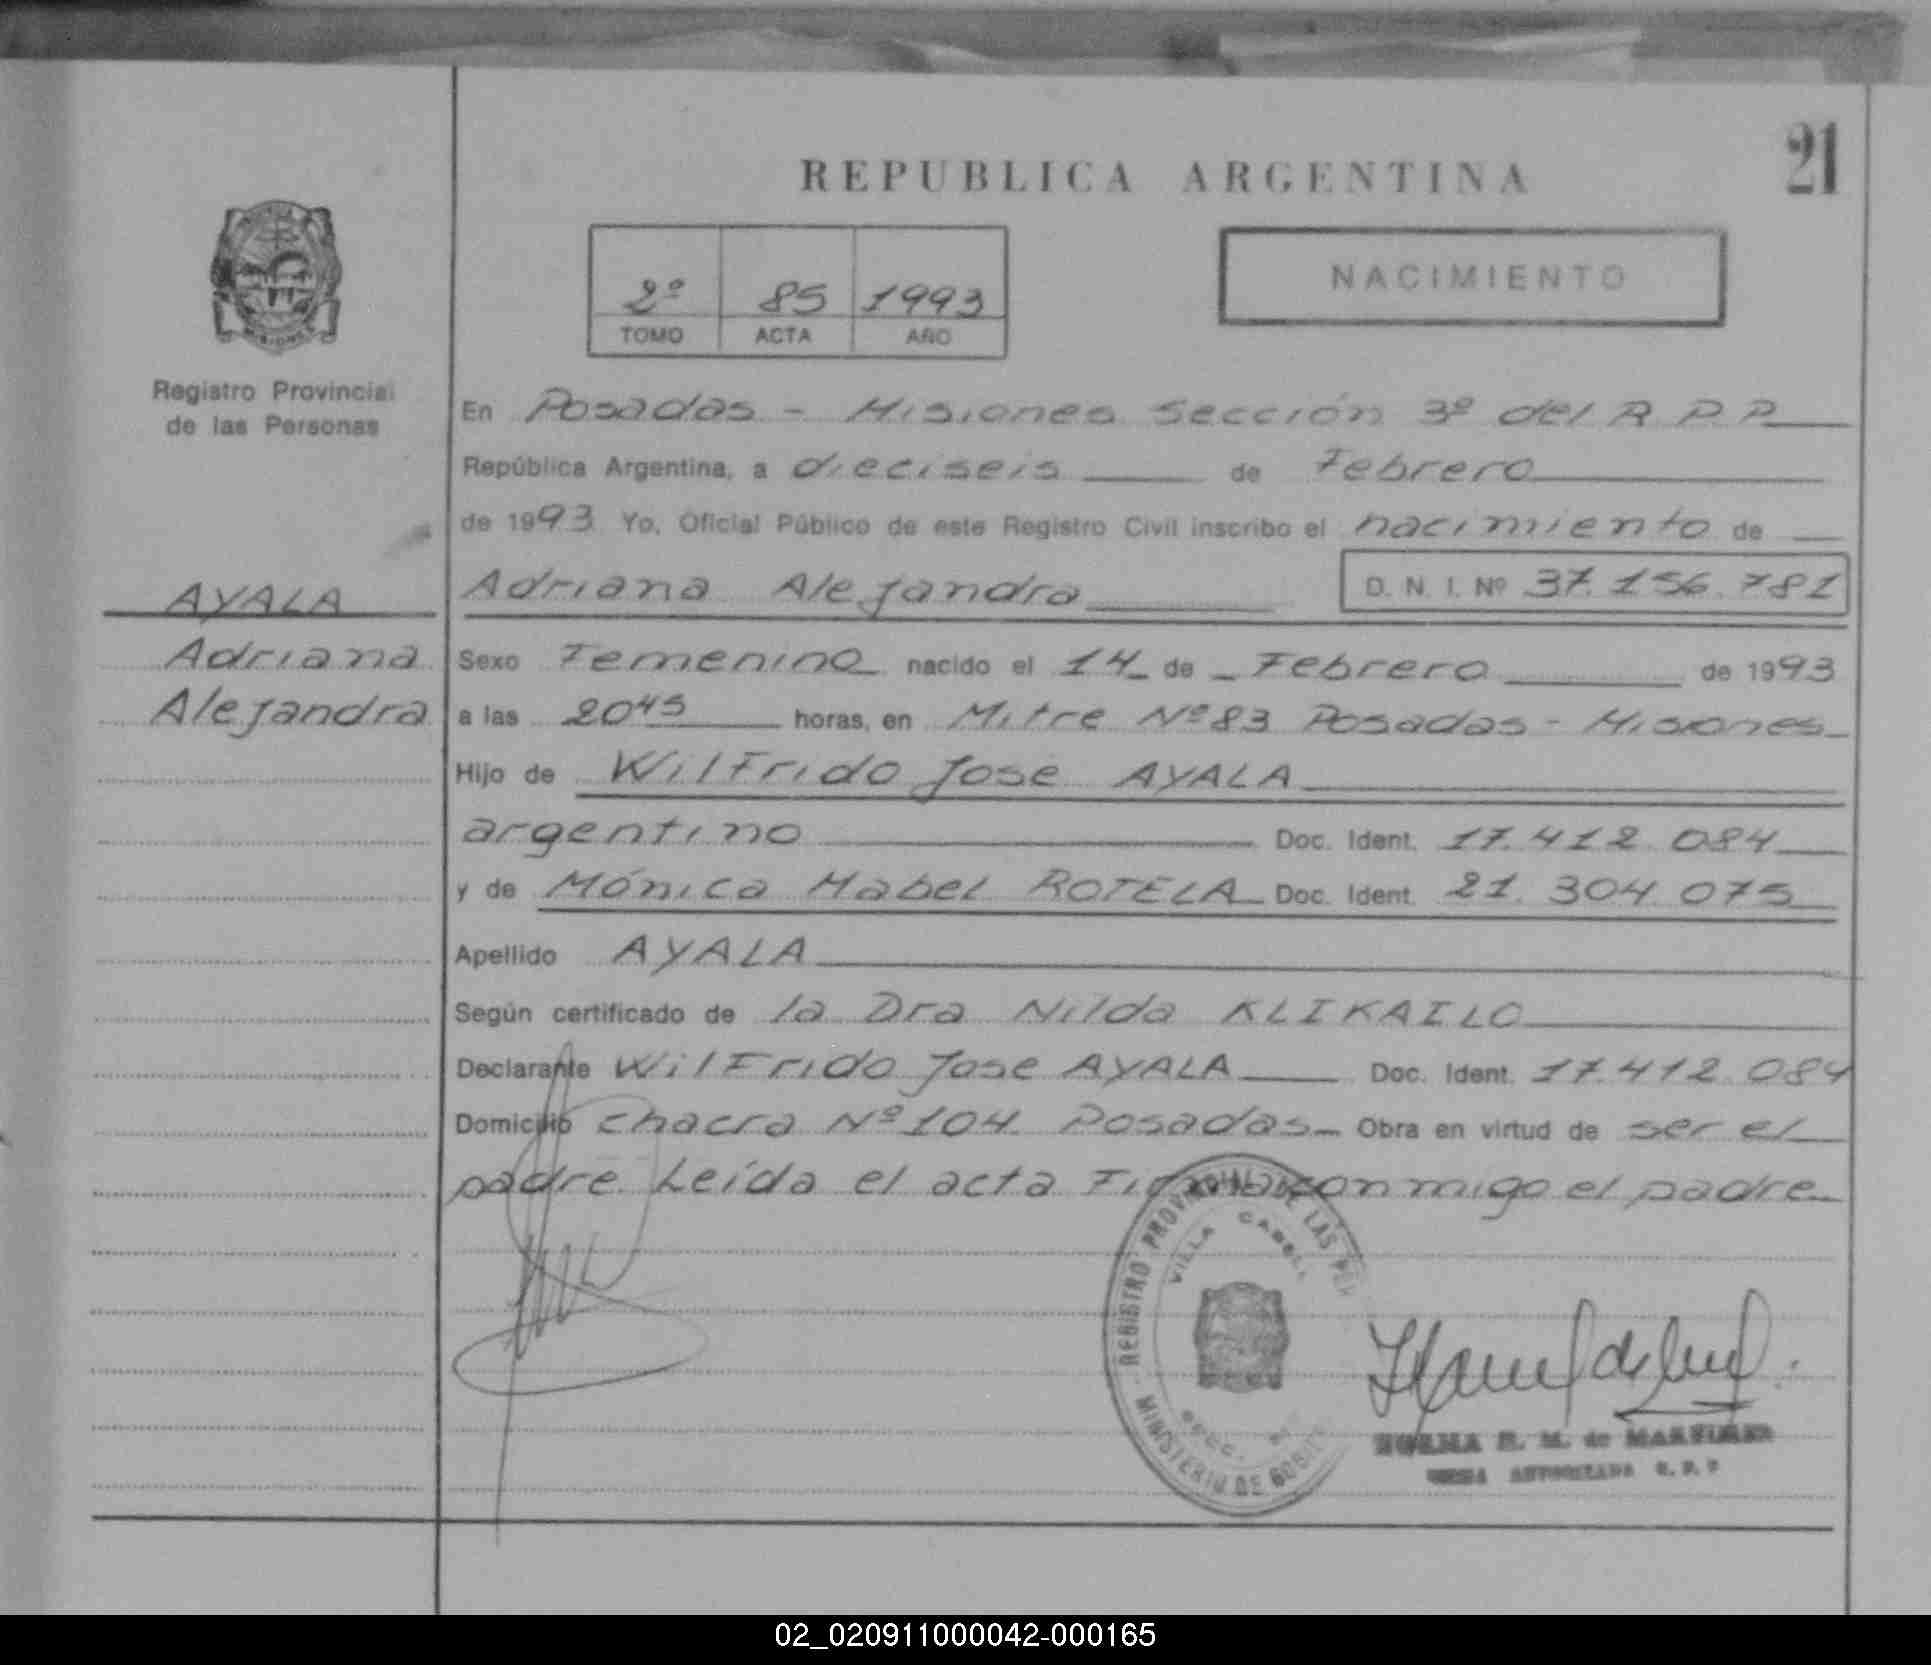 21
REPUBLICA ARGENTINA
2º 85 1993
TOMO ACTA AÑO
NACIMIENTO
Registro Provincial
de las Personas
En Posadas - Misiones Sección 3º del R P P
República Argentina, a dieciseis de Febrero
de 1993 Yo, Oficial Público de este Registro Civil inscribo el nacimiento de
AYALA
Adriana
Alejandra
Adriana Alejandra D. N. I. Nº 37.156.781
Sexo Femenino nacido el 14 de Febrero de 1993
a las 20 45 horas, en Mitre Nº 83 Posadas - Misiones
Hijo de Wilfrido Jose AYALA
argentino Doc. Ident. 17.412.084
y de Mónica Mabel ROTELA Doc. Ident. 21.304.075
Apellido AYALA
Según certificado de la Dra Nilda KLIKAILO
Declarante Wilfrido Jose AYALA Doc. Ident. 17.412.084
Domicilio chacra Nº 104 Posadas Obra en virtud de ser el
padre Leída el acta Firma conmigo el padre
REGISTRO PROVINCIAL DE LAS
VILLA CABELL
MINISTERIO DE
NORMA E. M. de MARTINEZ
02_020911000042-000165